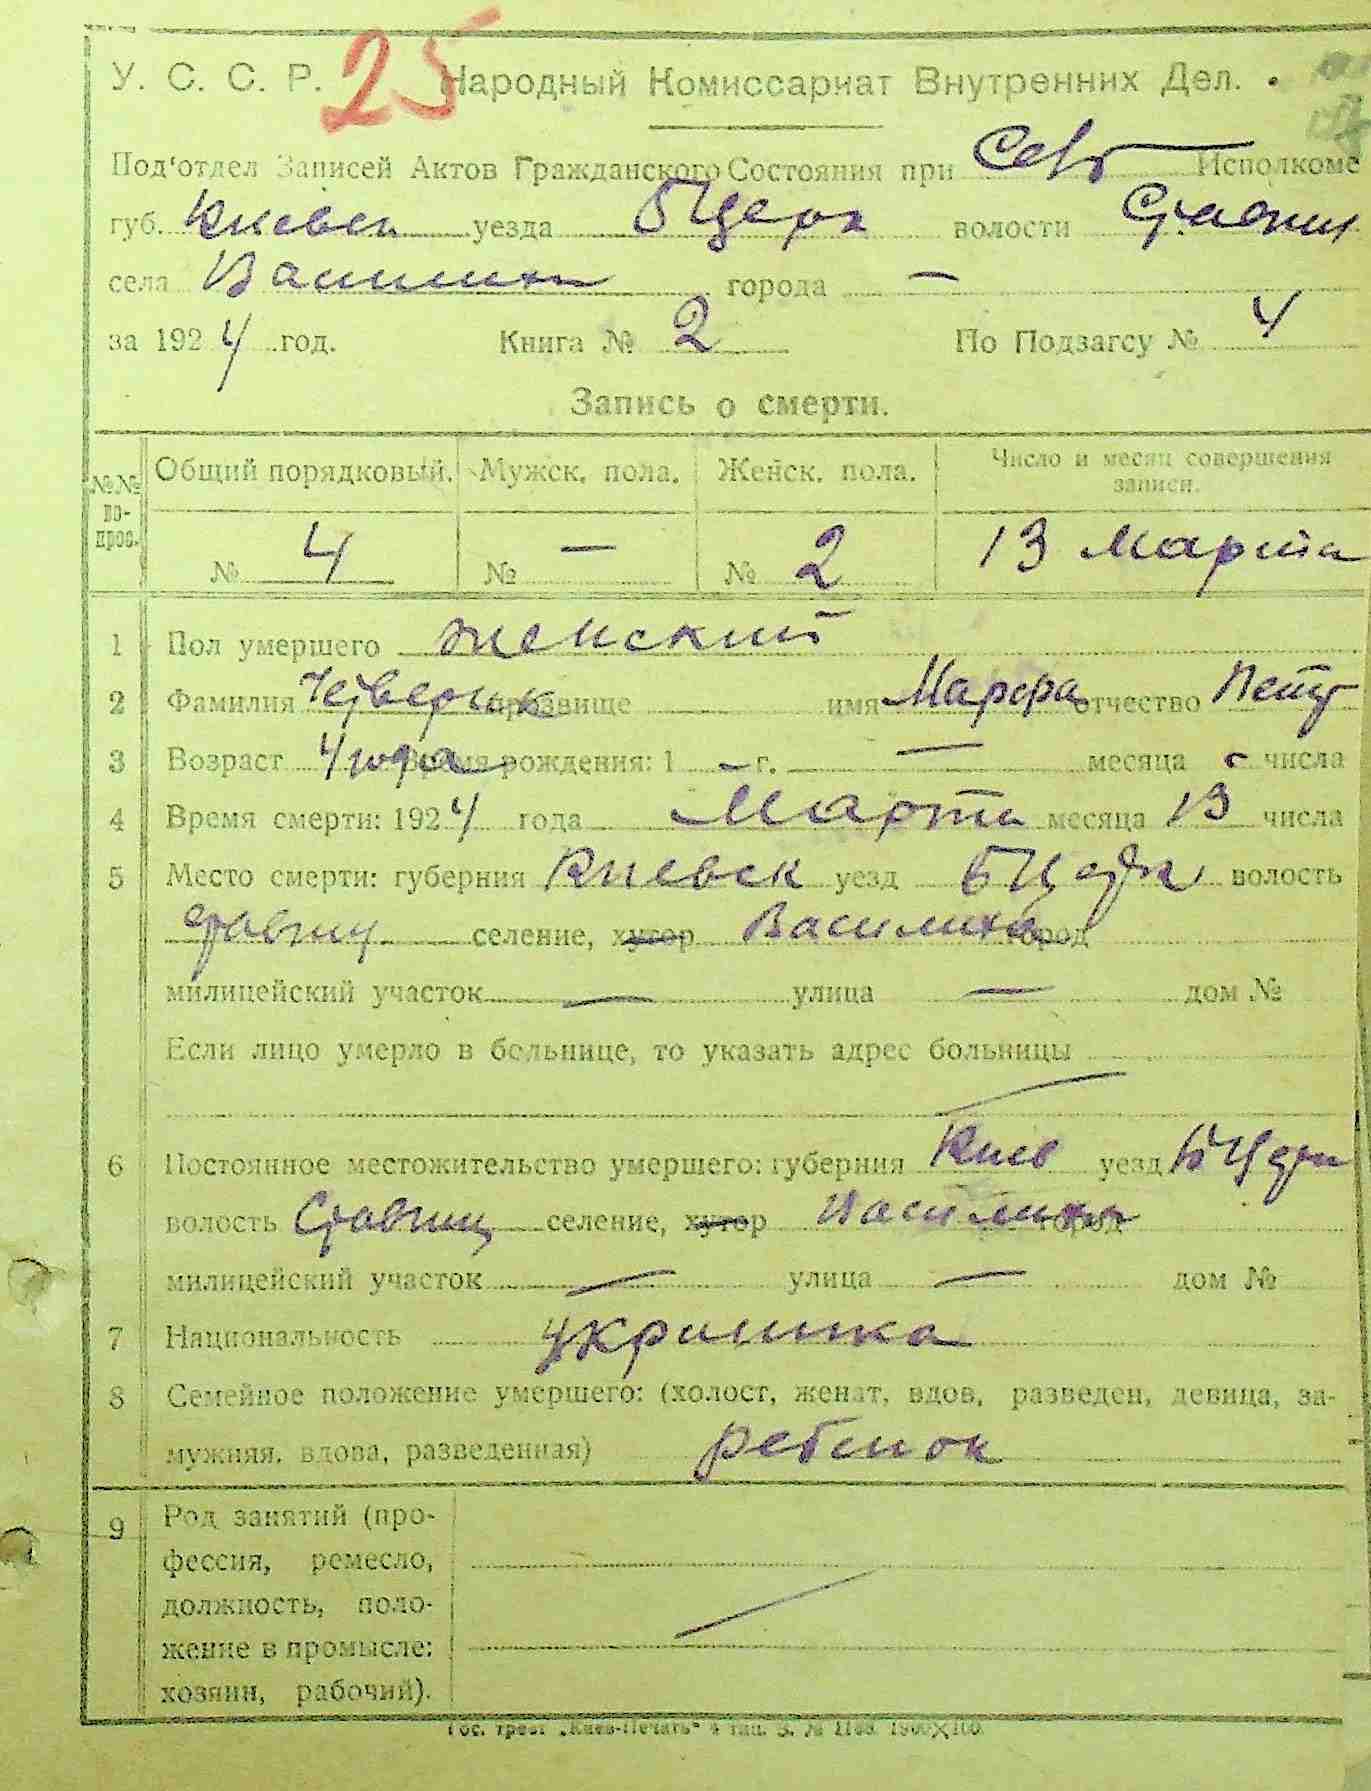 У. С. С. Р. 25 Народный Комиссариат Внутренних Дел.
Под'отдел Записей Актов Гражданского Состояния при Исполкоме
губ. Киевск уезда БЦерк волости Ставищ
села Василиха города —
за 1924 год. Книга № 2 По Подзагсу № 4
Запись о смерти.
№№ вопрос. Общий порядковый. Мужск. пола. Женск. пола. Число и месяц совершения записи.
№ 4 № — № 2 13 Марта
1 Пол умершего женский
2 Фамилия Четверик прозвище имя Марфа отчество Петр
3 Возраст 4 года Время рождения: 1 — г. — месяца - числа
4 Время смерти: 1924 года Марта месяца 13 числа
5 Место смерти: губерния Киевск уезд БЦерк волость
Ставищ селение, хутор Василиха город
милицейский участок — улица — дом №
Если лицо умерло в больнице, то указать адрес больницы
—
6 Постоянное местожительство умершего: губерния Киев уезд БЦерк
волость Ставищ селение, хутор Василиха город
милицейский участок — улица — дом №
7 Национальность украинка
8 Семейное положение умершего: (холост, женат, вдов, разведен, девица, за-
мужняя, вдова, разведенная) ребенок
9 Род занятий (про-
фессия, ремесло,
должность, поло-
жение в промысле:
хозяин, рабочий). —
Гос. трест „Киев-Печать" 4 тип. З. №